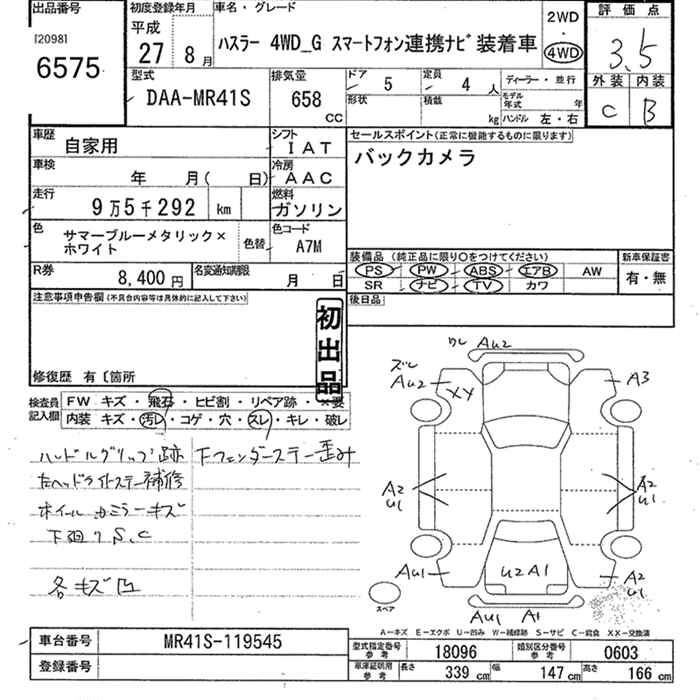 出品番号
[2098]
6575
初度登録年月
平成
27年 8月
車名・グレード
ハスラー 4WD_G スマートフォン連携ナビ装着車
2WD
・
4WD
評価点
3.5
外装 内装
C B
型式
DAA-MR41S
排気量
658
CC
ドア 5
形状
定員 4 人
積載 kg
ディーラー・並行
モデル年式 年
ハンドル 左・右
車歴 自家用
シフト IAT
車検 年 月( 日)
冷房 AAC
走行 9万5千292 km
燃料 ガソリン
色 サマーブルーメタリック×
ホワイト
色替
色コード A7M
R券 8,400 円
名変通知期限 月 日
セールスポイント(正常に機能するものに限ります)
バックカメラ
装備品(純正品に限り○をつけてください)
PS PW ABS エアB AW
SR ナビ TV カワ
新車保証書
有・無
後日品
注意事項申告欄(不具合内容等は具体的に記入して下さい)
初出品
修復歴 有〔箇所
検査員
記入欄
FW キズ・飛石・ヒビ割・リペア跡・×要
内装 キズ・汚レ・コゲ・穴・スレ・キレ・破レ
ハンドルグリップ跡
下フェンダーステー歪み
左ヘッドライトステー補修
ホイール カミラーキズ
下廻りS,C
各キズ凹
ワレ AU2
ズレ
AU2
XX
A3
A2
U1
A2
U1
AU1
U2A1
A2
U1
AU1 A1
スペア
A-キズ E-エクボ U-凹み W-補修跡 S-サビ C-腐食 XX-交換済
車台番号 MR41S-119545
登録番号
型式指定番号
参考
18096
類別区分番号
参考
0603
車庫証明用
参考
長さ 339 cm 幅 147 cm 高さ 166 cm